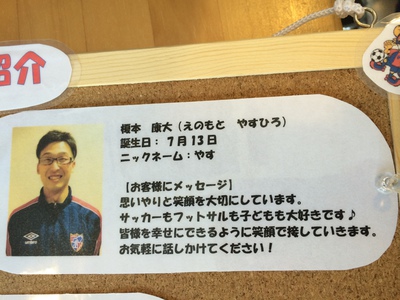 紹介
榎本 康大（えのもと やすひろ）
誕生日：７月１３日
ニックネーム：やす
【お客様にメッセージ】
思いやりと笑顔を大切にしています。
サッカーもフットサルも子どもも大好きです♪
皆様を幸せにできるように笑顔で接していきます。
お気軽に話しかけてください！
UMBRO